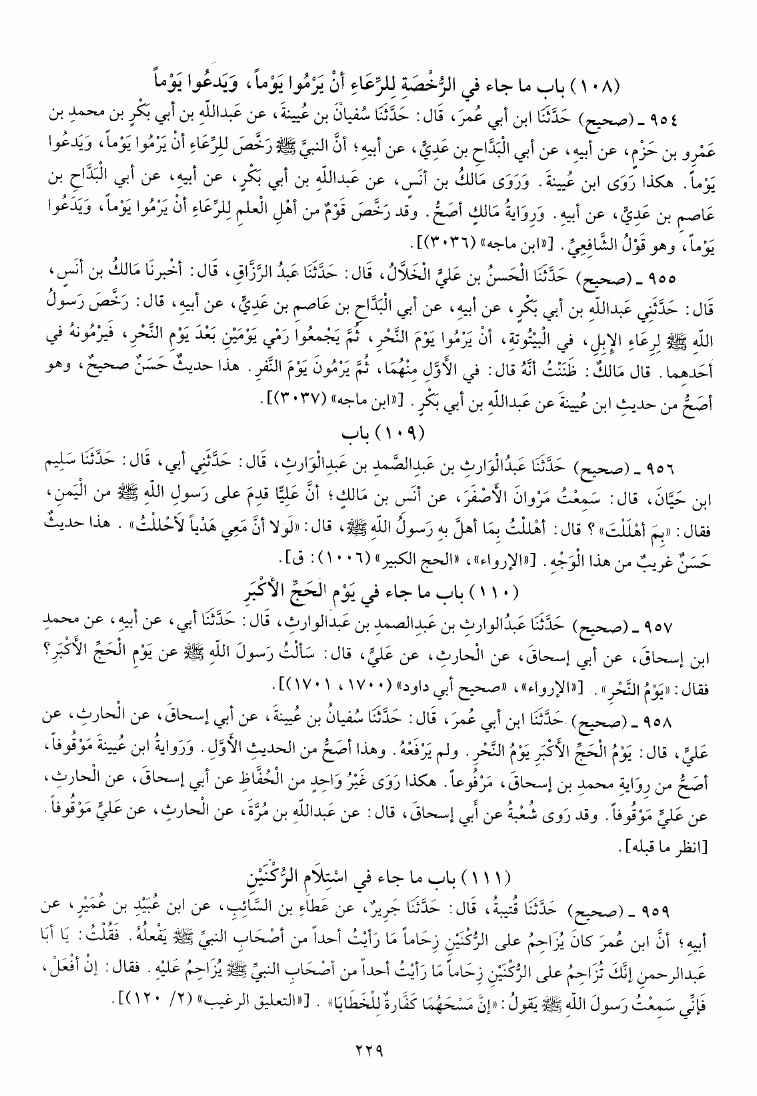 (١٠٨) باب ما جاء في الرُّخْصَةِ لِلرِّعَاءِ أنْ يَرْمُوا يَوْماً، وَيَدعُوا يَوْماً
٩٥٤ ـ (صحيح) حَدَّثَنَا ابن أبي عُمرَ، قال: حَدَّثَنَا سُفيانُ بن عُيينةَ، عن عَبداللّهِ بن أبي بَكْرِ بن محمدِ بن
عَمْرِو بن حَزْمٍ، عن أبيهِ، عن أبي الْبَدَّاحِ بن عَديٍّ، عن أبيهِ؛ أنَّ النبيَّ ﷺ رَخَّصَ لِلرِّعَاءِ أنْ يَرْمُوا يَوْماً، وَيَدعُوا
يَوْماً. هكذا رَوَى ابن عُيينةَ. وَرَوَى مَالكُ بن أنَسٍ، عن عَبداللّهِ بن أبي بَكْرٍ، عن أبيهِ، عن أبي الْبَدَّاحِ بن
عَاصمِ بن عَديٍّ، عن أبيهِ. وَرِوَايةُ مَالكٍ أصَحُّ. وقد رَخَّصَ قَوْمٌ من أهْلِ الْعلمِ لِلرِّعَاءِ أنْ يَرْمُوا يَوْماً، وَيَدَعُوا
يَوْماً، وهو قَوْلُ الشَّافِعيِّ. [«ابن ماجه» (٣٠٣٦)].
٩٥٥ ـ (صحيح) حَدَّثَنَا الْحَسنُ بن عَليٍّ الْخَلَّالُ، قال: حَدَّثَنَا عَبدُ الرَّزَّاقِ، قال: أخْبرنَا مَالكُ بن أنَسٍ،
قال: حَدَّثَنِي عَبداللّهِ بن أبي بَكْرٍ، عن أبيهِ، عن أبي الْبَدَّاحِ بن عَاصمِ بن عَديٍّ، عن أبيهِ، قال: رَخَّصَ رَسولُ
اللّهِ ﷺ لِرِعَاءِ الإبِلِ، في الْبيْتُوتةِ، أنْ يَرْمُوا يَوْمَ النَّحْرِ، ثُمَّ يَجْمعُوا رَمْيَ يَوْمَيْنِ بَعْدَ يَوْمِ النَّحْرِ، فَيَرْمُونهُ في
أحَدهما. قال مَالكٌ: ظَنَنْتُ أنَّهُ قال: في الأوَّلِ مِنْهُمَا، ثُمَّ يَرْمُونَ يَوْمَ النَّفْرِ. هذا حديثٌ حَسَنٌ صحيحٌ، وهو
أصَحُّ من حديثِ ابن عُيينةَ عن عَبداللّهِ بن أبي بَكْرٍ. [«ابن ماجه» (٣٠٣٧)].
(١٠٩) باب
٩٥٦ ـ (صحيح) حَدَّثَنَا عَبدُالْوَارثِ بن عَبدِالصَّمدِ بن عَبدِالْوَارثِ، قال: حَدَّثَنِي أبي، قال: حَدَّثَنَا سَلِيم
ابن حَيَّانَ، قال: سَمِعْتُ مَرْوانَ الأصْفَرَ، عن أنَسِ بن مَالكٍ؛ أنَّ عَلِيًّا قدِمَ على رَسولِ اللّهِ ﷺ من الْيَمنِ،
فقال: «بِمَ أهْلَلْتَ»؟ قال: أهْللْتُ بِمَا أهلَّ بهِ رَسولُ اللّهِ ﷺ، قال: «لَولا أنَّ مَعِي هَدْياً لأحْللْتُ». هذا حديثٌ
حَسَنٌ غريبٌ من هذا الْوَجْهِ. [«الإرواء»، «الحج الكبير» (١٠٠٦): ق].
(١١٠) باب ما جاء في يَوْمِ الْحَجِّ الأكْبَرِ
٩٥٧ ـ (صحيح) حَدَّثَنَا عَبدُالوارثِ بن عَبدِالصمدِ بن عَبدالوارثِ، قال: حَدَّثَنَا أبي، عن أبيهِ، عن محمدِ
ابن إسحاقَ، عن أبي إسحاقَ، عن الْحارثِ، عن عَليٍّ، قال: سَألْتُ رَسولَ اللّهِ ﷺ عن يَوْمِ الْحَجِّ الأكْبَرِ؟
فقال: «يَوْمُ النَّحْرِ». [«الإرواء»، «صحيح أبي داود» (١٧٠٠، ١٧٠١)].
٩٥٨ ـ (صحيح) حَدَّثَنَا ابن أبي عُمرَ، قال: حَدَّثَنَا سُفيانُ بن عُيينةَ، عن أبي إسحاقَ، عن الْحارثِ، عن
عَليٍّ، قال: يَوْمُ الْحَجِّ الأكْبَرِ يَوْمُ النَّحْرِ. ولم يَرْفَعْهُ. وهذا أصَحُّ من الحديثِ الأوَّلِ. وَرَوايةُ ابن عُيينةَ مَوْقُوفاً،
أصَحُّ من رِوايةِ محمدِ بن إسحاقَ، مَرْفُوعاً. هكذا رَوَى غَيْرُ وَاحِدٍ من الْحُفَّاظِ عن أبي إسحاقَ، عن الْحارثِ،
عن عَليٍّ مَوْقُوفاً. وقد رَوى شُعْبةُ عن أبي إسحاقَ، قال: عن عَبداللّهِ بن مُرَّةَ، عن الْحارثِ، عن عَليٍّ مَوْقُوفاً.
[انظر ما قبله].
(١١١) باب ما جاء في اسْتِلَامِ الرُّكْنَيْنِ
٩٥٩ ـ (صحيح) حَدَّثَنَا قُتيبةُ، قال: حَدَّثَنَا جَريرٌ، عن عَطاءِ بن السَّائبِ، عن ابن عُبَيْدِ بن عُمَيْرٍ، عن
أبيهِ؛ أنَّ ابن عُمرَ كانَ يُزَاحِمُ على الرُّكْنَيْنِ زِحَاماً مَا رَأيْتُ أحداً من أصْحَابِ النبيِّ ﷺ يَفْعلُهُ. فَقُلْتُ: يَا أبَا
عَبدالرحمنِ إنَّكَ تُزَاحِمُ على الرُّكْنَيْنِ زِحَاماً مَا رَأيْتُ أحداً من أصْحَابِ النبيِّ ﷺ يُزَاحِمُ عَليْهِ. فقال: إنْ أفْعَلْ،
فَإنِّي سَمِعْتُ رَسولَ اللّهِ ﷺ يَقولُ: «إنَّ مَسْحَهُمَا كَفَّارةٌ لِلْخَطَايَا». [«التعليق الرغيب» (٢/ ١٢٠)].
٢٢٩